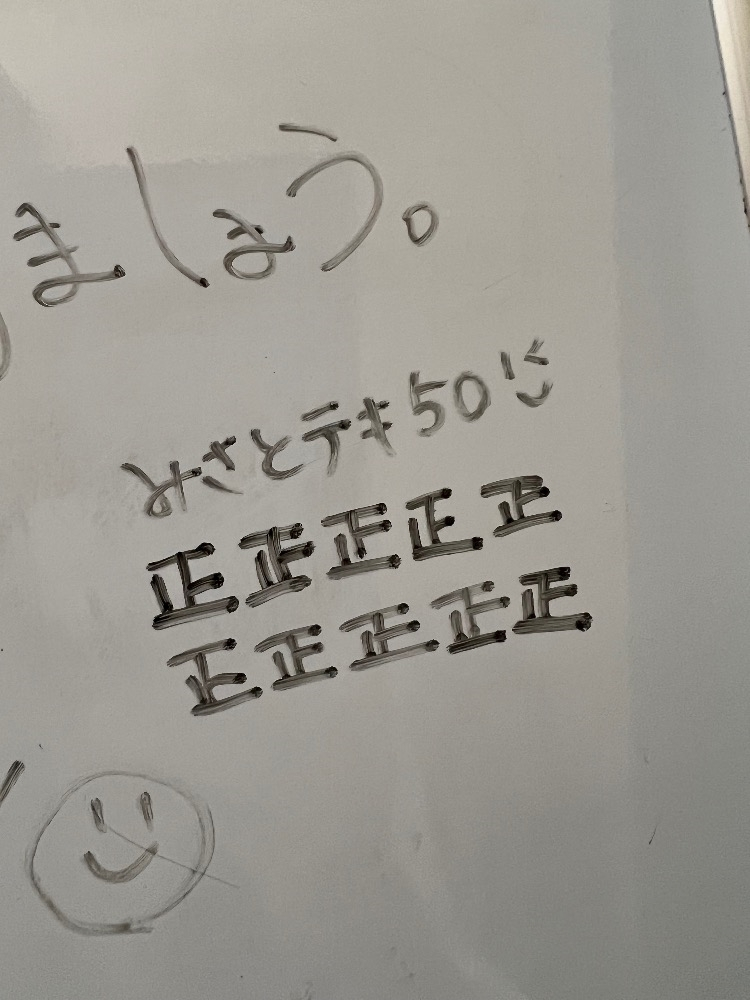 ましょう。
みさとテキ50
正正正正正
正正正正正